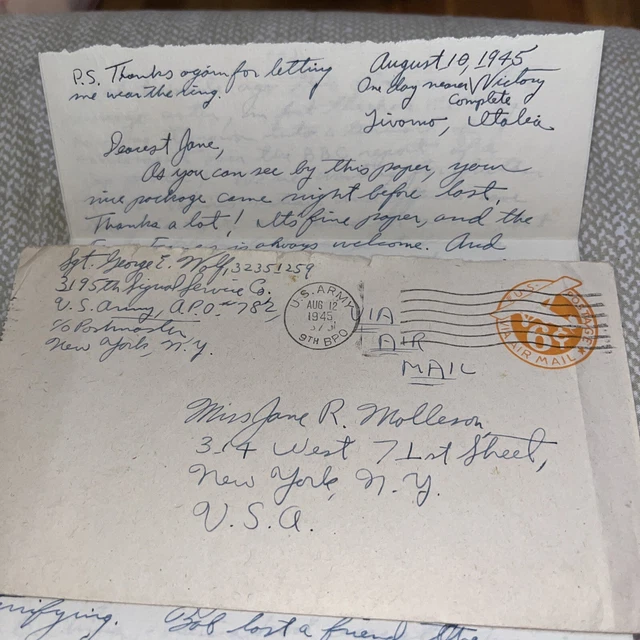 P.S. Thanks again for letting
me wear the ring.
August 10, 1945
One day nearer Victory
Complete
Livorno, Italia
Dearest Jane,
As you can see by this paper, your
nice package came night before last.
Thanks a lot! It's fine paper, and the
is always welcome. And
Sgt. George E. Wolf, 32351259
3195th Signal Service Co.
U.S. Army, A.P.O. #782,
% Postmaster
New York, N.Y.
U.S. ARMY
AUG 12
1945
9TH BPO
VIA
AIR
MAIL
U.S. POSTAGE
6¢
VIA AIR MAIL
Miss Jane R. Molleson,
314 West 71st Street,
New York, N.Y.
U.S.A.
Bob lost a friend